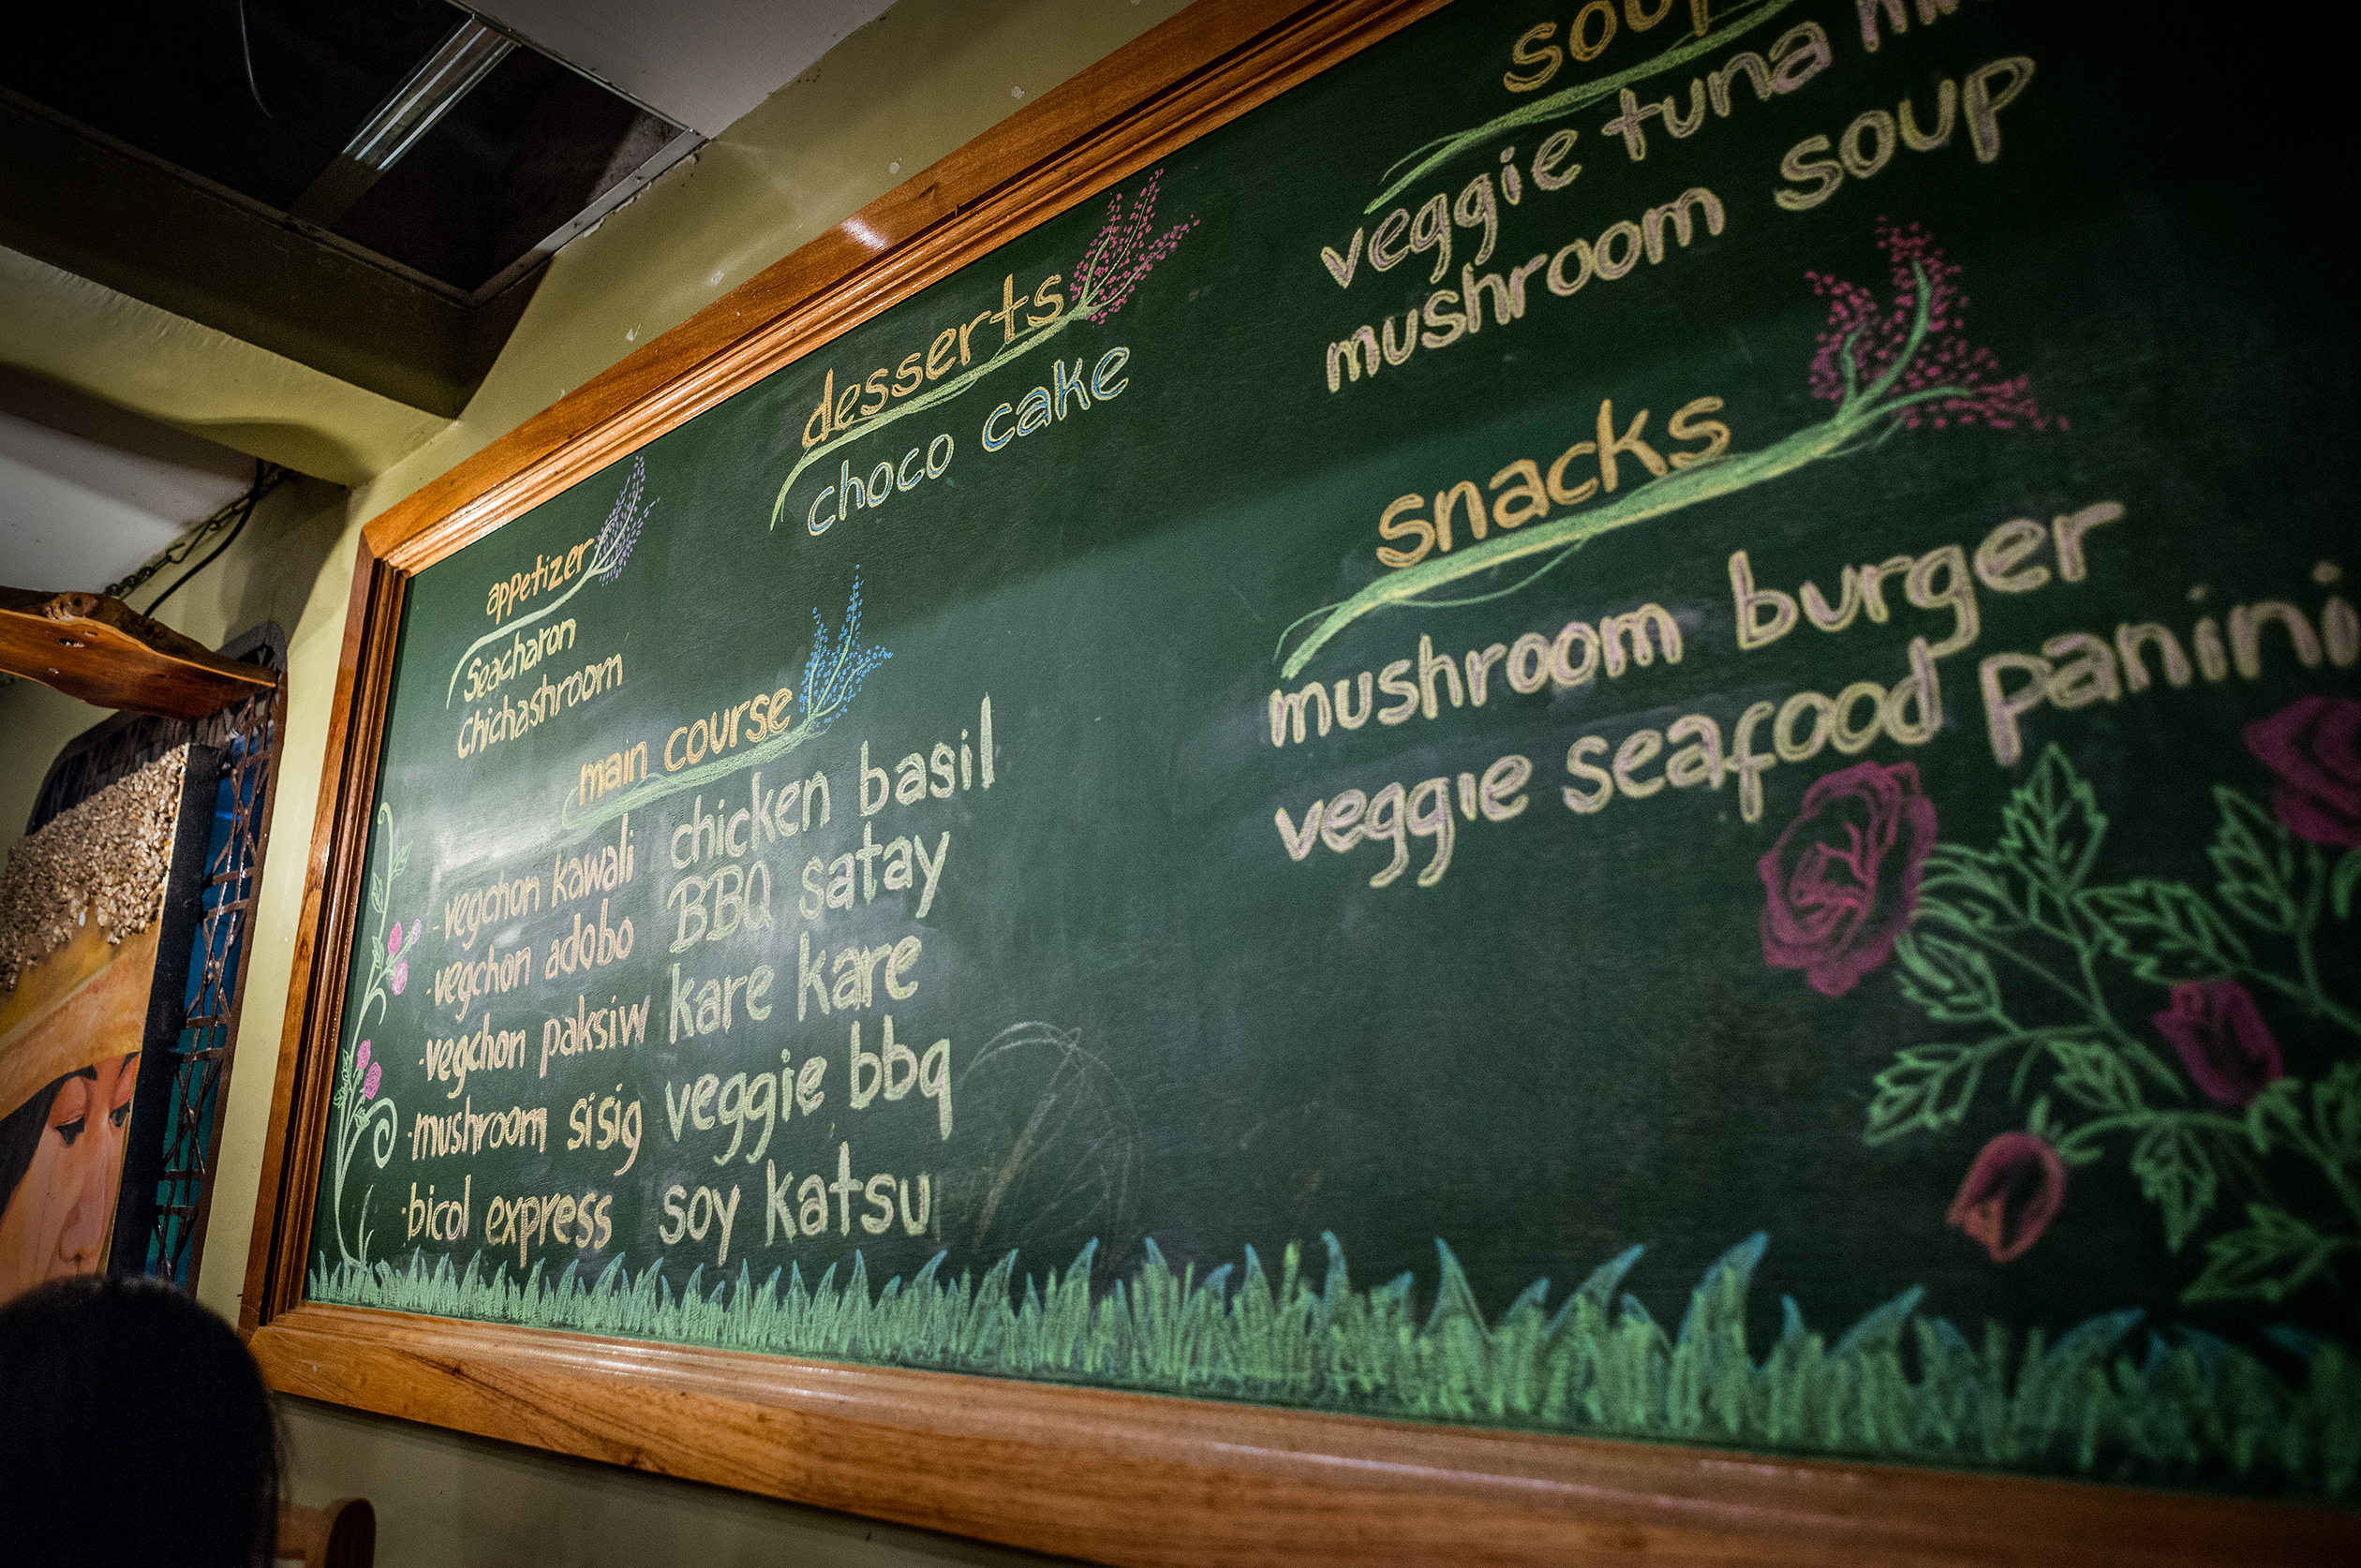 appetizer
Seacharon
chichashroom
desserts
choco cake
main course
·vegchon kawali
·vegchon adobo
·vegchon paksiw
·mushroom sisig
·bicol express
chicken basil
BBQ satay
kare kare
veggie bbq
soy katsu
soup
veggie tuna
mushroom soup
snacks
mushroom burger
veggie seafood panini